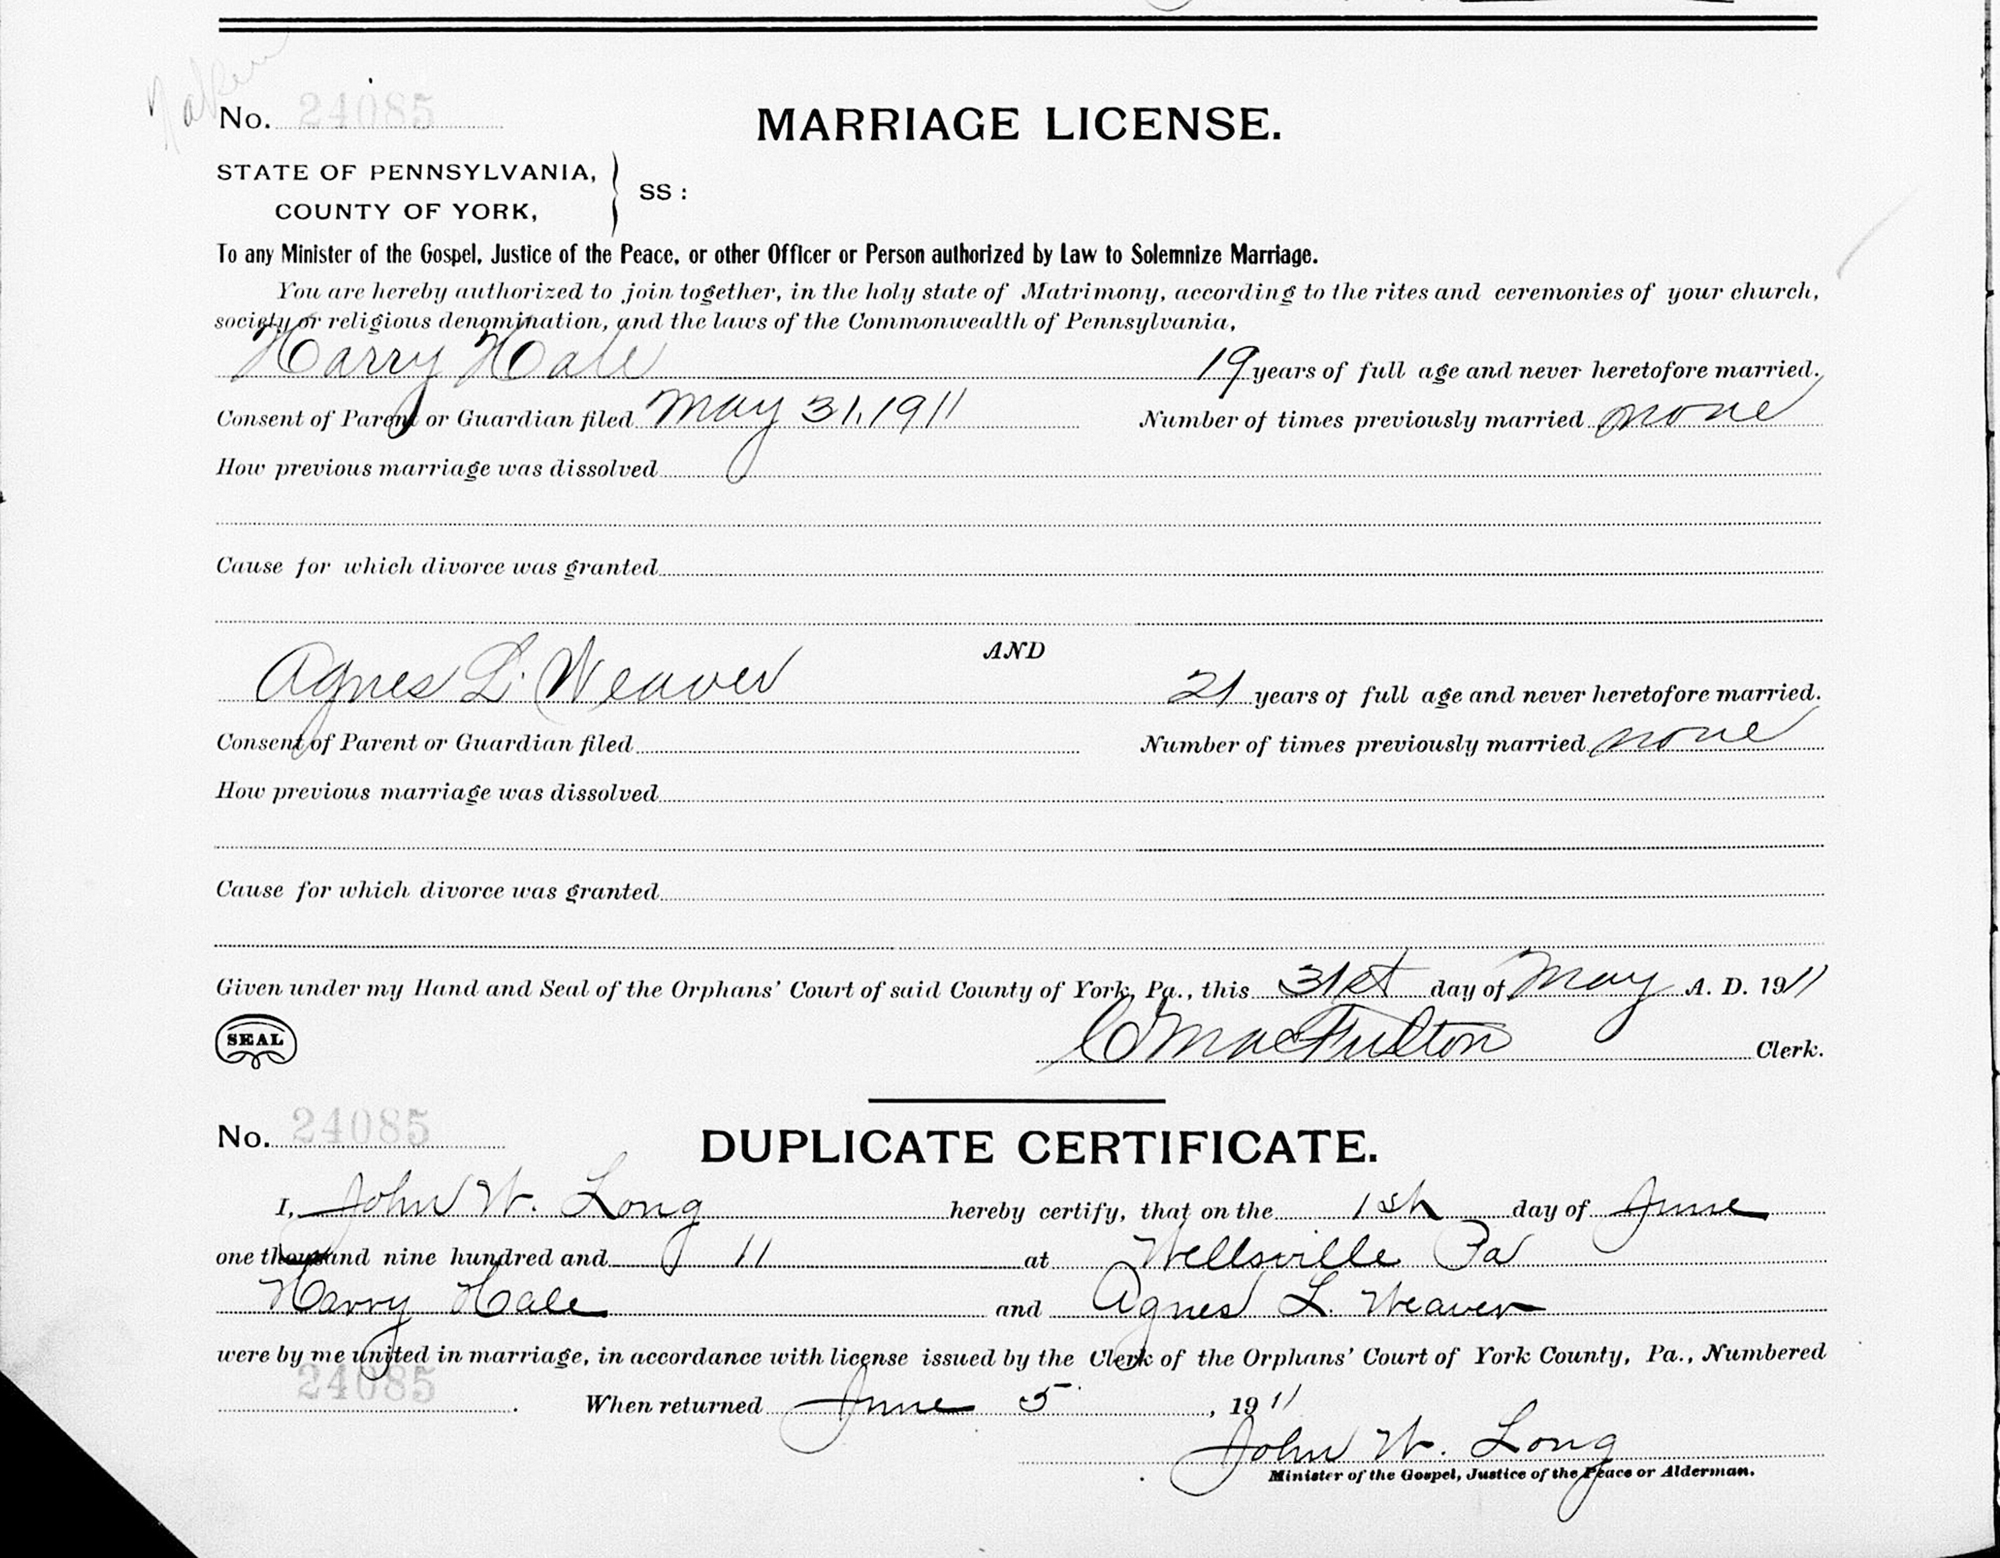 Taken
No. 24085
MARRIAGE LICENSE.
STATE OF PENNSYLVANIA,
COUNTY OF YORK,
SS:
To any Minister of the Gospel, Justice of the Peace, or other Officer or Person authorized by Law to Solemnize Marriage.
You are hereby authorized to join together, in the holy state of Matrimony, according to the rites and ceremonies of your church,
society or religious denomination, and the laws of the Commonwealth of Pennsylvania,
Harry Hale 19 years of full age and never heretofore married.
Consent of Parent or Guardian filed May 31, 1911 Number of times previously married none
How previous marriage was dissolved
Cause for which divorce was granted
AND
Agnes L. Weaver 21 years of full age and never heretofore married.
Consent of Parent or Guardian filed Number of times previously married none
How previous marriage was dissolved
Cause for which divorce was granted
Given under my Hand and Seal of the Orphans' Court of said County of York, Pa., this 31st day of May A. D. 1911
SEAL
Fulton Clerk.
No. 24085
DUPLICATE CERTIFICATE.
I, John W. Long hereby certify, that on the 1st day of June
one thousand nine hundred and 11 at Wellsville Pa
Harry Hale and Agnes L. Weaver
were by me united in marriage, in accordance with license issued by the Clerk of the Orphans' Court of York County, Pa., Numbered
24085. When returned June 5, 1911
John W. Long
Minister of the Gospel, Justice of the Peace or Alderman.